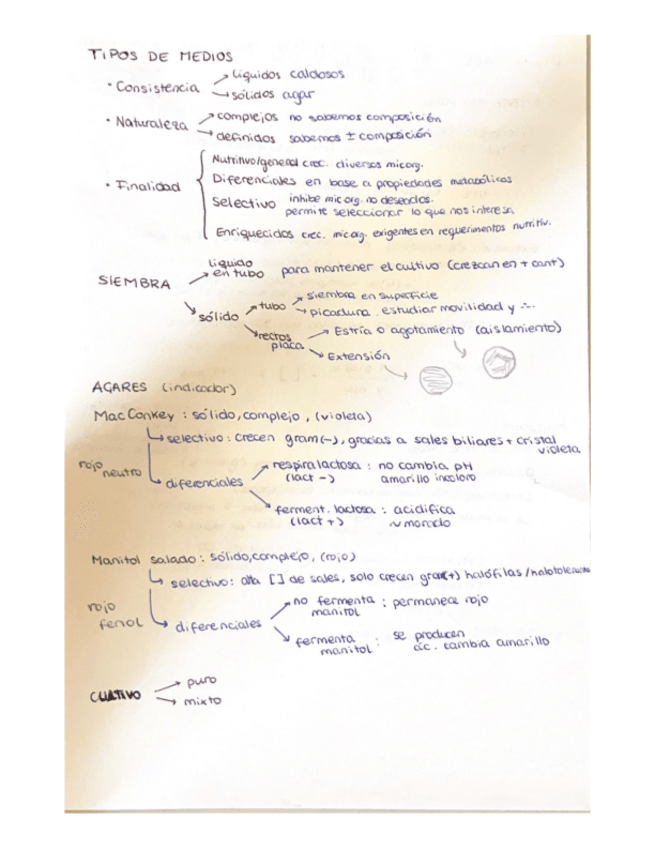 TIPOS DE MEDIOS
· Consistencia → líquidos caldosos
→ sólidos agar
· Naturaleza → complejos no sabemos composición
→ definidos sabemos ± composición
Nutritivo/general crec. diversos microrg.
· Finalidad { Diferenciales en base a propiedades metabólicas
Selectivo inhibe microrg. no deseados.
permite seleccionar lo que nos interesa.
Enriquecidos crec. microrg. exigentes en requerimientos nutritiv.
SIEMBRA → líquido en tubo para mantener el cultivo (crezcan en + cant)
→ sólido → tubo → siembra en superficie
→ picadura. estudiar movilidad y
→ placa → Estría o agotamiento (aislamiento)
→ Extensión
AGARES (indicador)
MacConkey : sólido, complejo, (violeta)
→ selectivo: crecen gram(-), gracias a sales biliares + cristal violeta
rojo neutro
→ diferenciales → respira lactosa : no cambia pH
(lact -) amarillo incoloro
→ ferment. lactosa : acidifica
(lact +) ~ morado
Manitol salado : sólido, complejo, (rojo)
→ selectivo: alta [] de sales, solo crecen gram(+) halófilas/halotolerantes
rojo fenol
→ diferenciales → no fermenta manitol : permanece rojo
→ fermenta manitol : se producen
ác. cambia amarillo
CULTIVO → puro
→ mixto